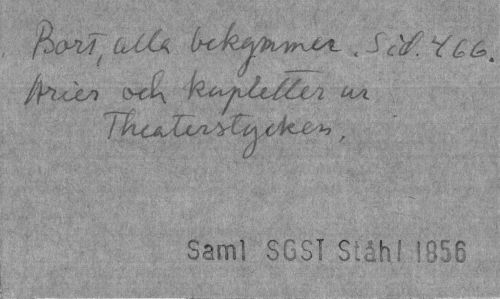 Bort, alla bekymmer. Sid. 466.
Arier och kupletter ur
Theaterstycken.
Saml SGST Ståhl 1856